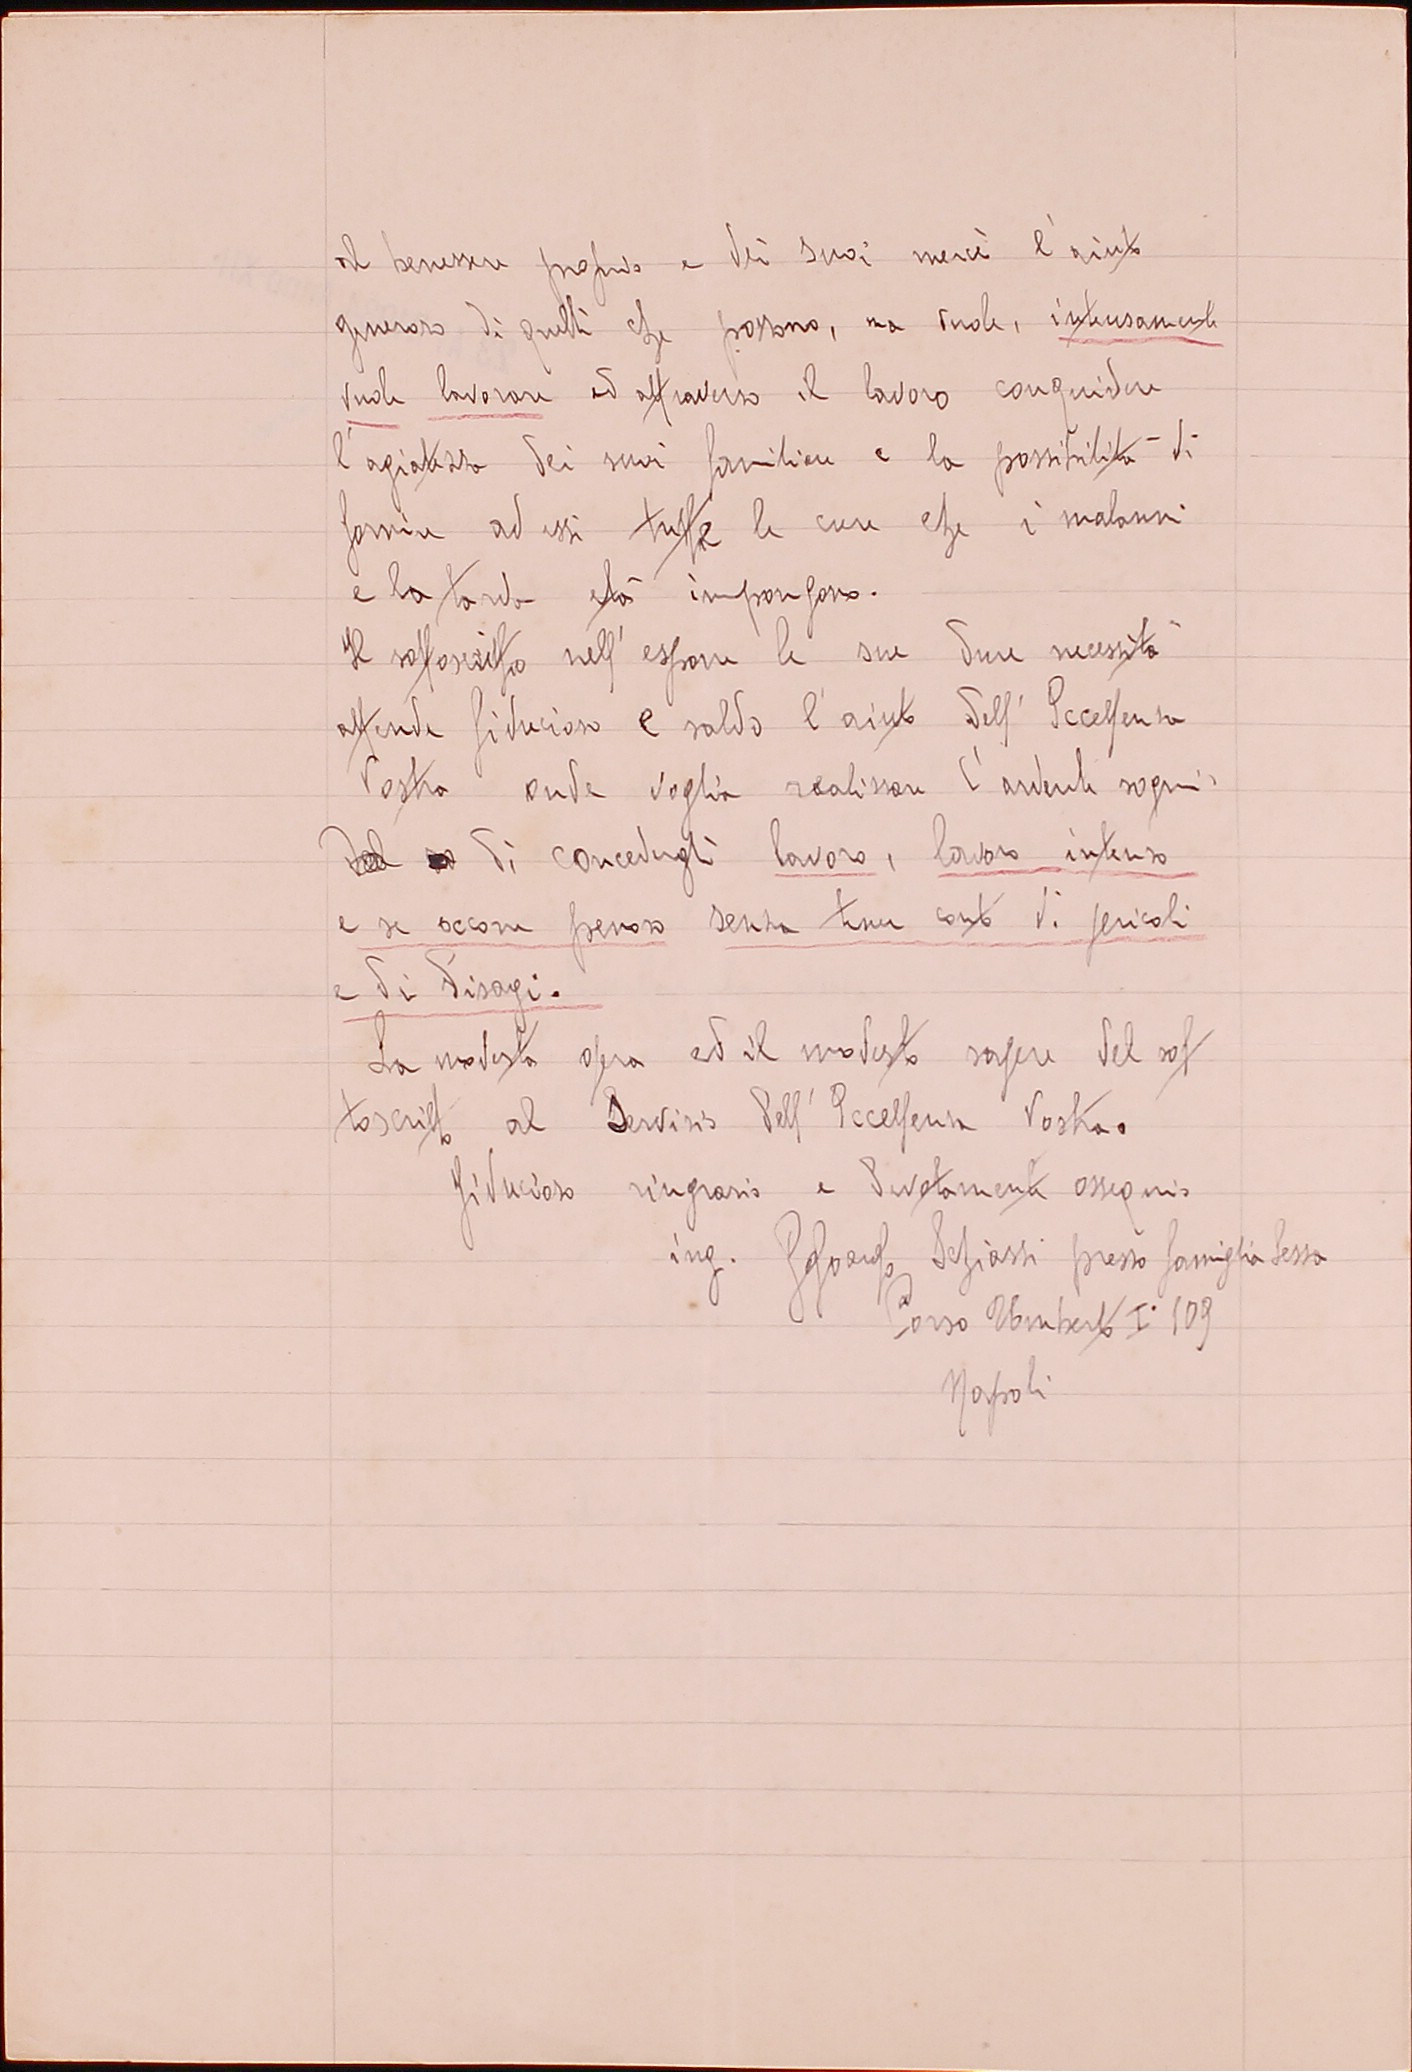 al benessere proprio e dei suoi mercè l'aiuto
generoso di quelli che possono, ma vuole, intensamente
vuole lavorare ed attraverso il lavoro conquidere
l'agiatezza dei suoi familiari e la possibilità di
fornire ad essi tutte le cure che i malanni
e la tarda età impongono.
Il sottoscritto nell'esporre le sue dure necessità
attende fiducioso e saldo l'aiuto dell'Eccellenza
Vostra onde voglia realizzare l'ardente sogno
di concedergli lavoro, lavoro intenso
e se occorre penoso senza tener conto di pericoli
e di disagi.
La modesta opera ed il modesto sapere del sot
toscritto al Servizio dell'Eccellenza Vostra.
Fiducioso ringrazio e devotamente ossequio
ing. Schiassi presso famiglia Sessa
Corso Umberto I° 109
Napoli